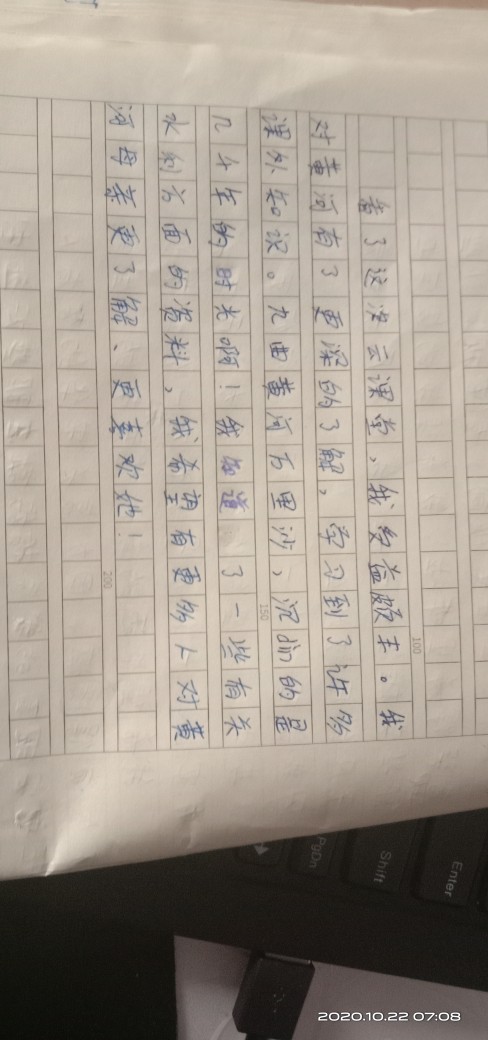 看了这次云课堂，我受益颇丰。我
对黄河有了更深的了解，学习到了许多
课外知识。九曲黄河万里沙，沉淀的是
几千年的时光啊！我知道了一些有关
水利方面的资料，我希望有更多人对黄
河母亲更了解、更喜欢她！
100
150
200
Enter
Shift
PgDn
2020.10.22 07:08